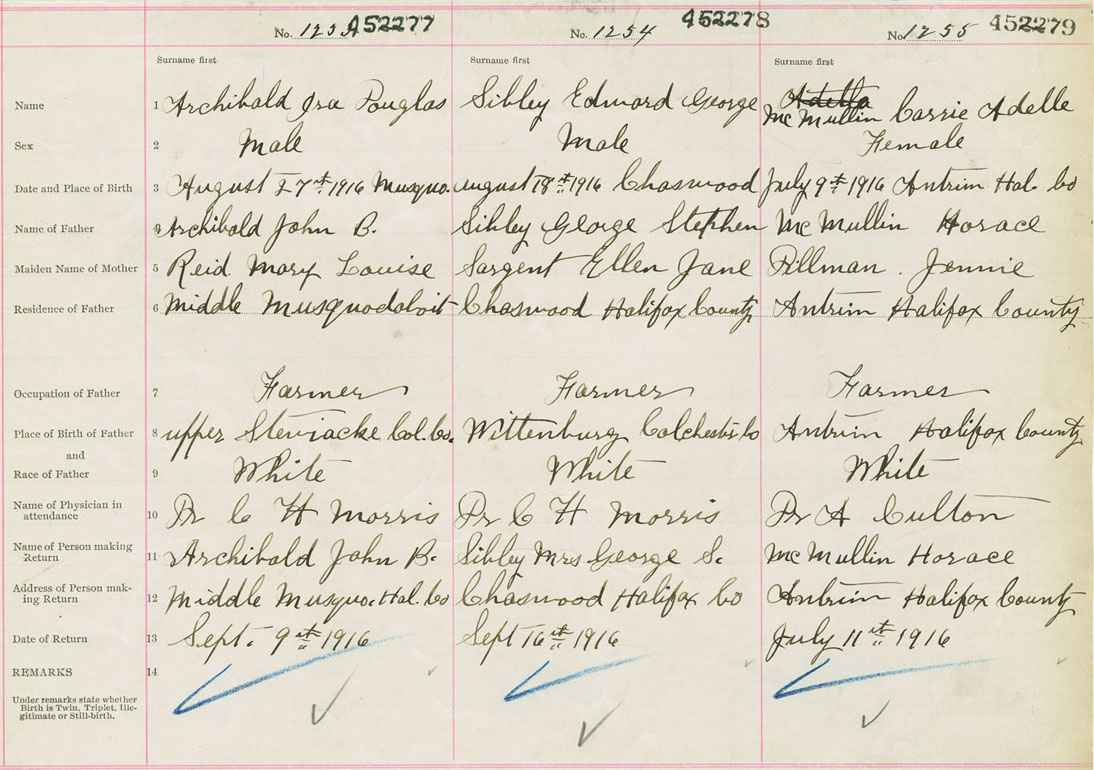 No. 1253 452277 No. 1254 452278 No. 1255 452279
Surname first Surname first Surname first
Adella
Name 1 Archibald Ira Douglas Sibley Edward George McMullin Carrie Adelle
Sex 2 Male Male Female
Date and Place of Birth 3 August 27th 1916 Musquo. August 18th 1916 Chaswood July 9th 1916 Antrim Hal. Co
Name of Father 4 Archibald John B. Sibley George Stephen McMullin Horace
Maiden Name of Mother 5 Reid Mary Louise Sargent Ellen Jane Dillman. Jennie
Residence of Father 6 Middle Musquodoboit Chaswood Halifax County Antrim Halifax County
Occupation of Father 7 Farmer Farmer Farmer
Place of Birth of Father 8 upper Stewiacke Col. Co. Wittenburg Colchester Co Antrim Halifax County
and
Race of Father 9 White White White
Name of Physician in
attendance 10 Dr C H Morris Dr C H Morris Dr A Culton
Name of Person making
Return 11 Archibald John B. Sibley Mrs George S. McMullin Horace
Address of Person mak-
ing Return 12 Middle Musquo. Hal. Co Chaswood Halifax Co Antrim Halifax County
Date of Return 13 Sept. 9th 1916 Sept 16th 1916 July 11th 1916
REMARKS 14
Under remarks state whether
Birth is Twin, Triplet, Ille-
gitimate or Still-birth.